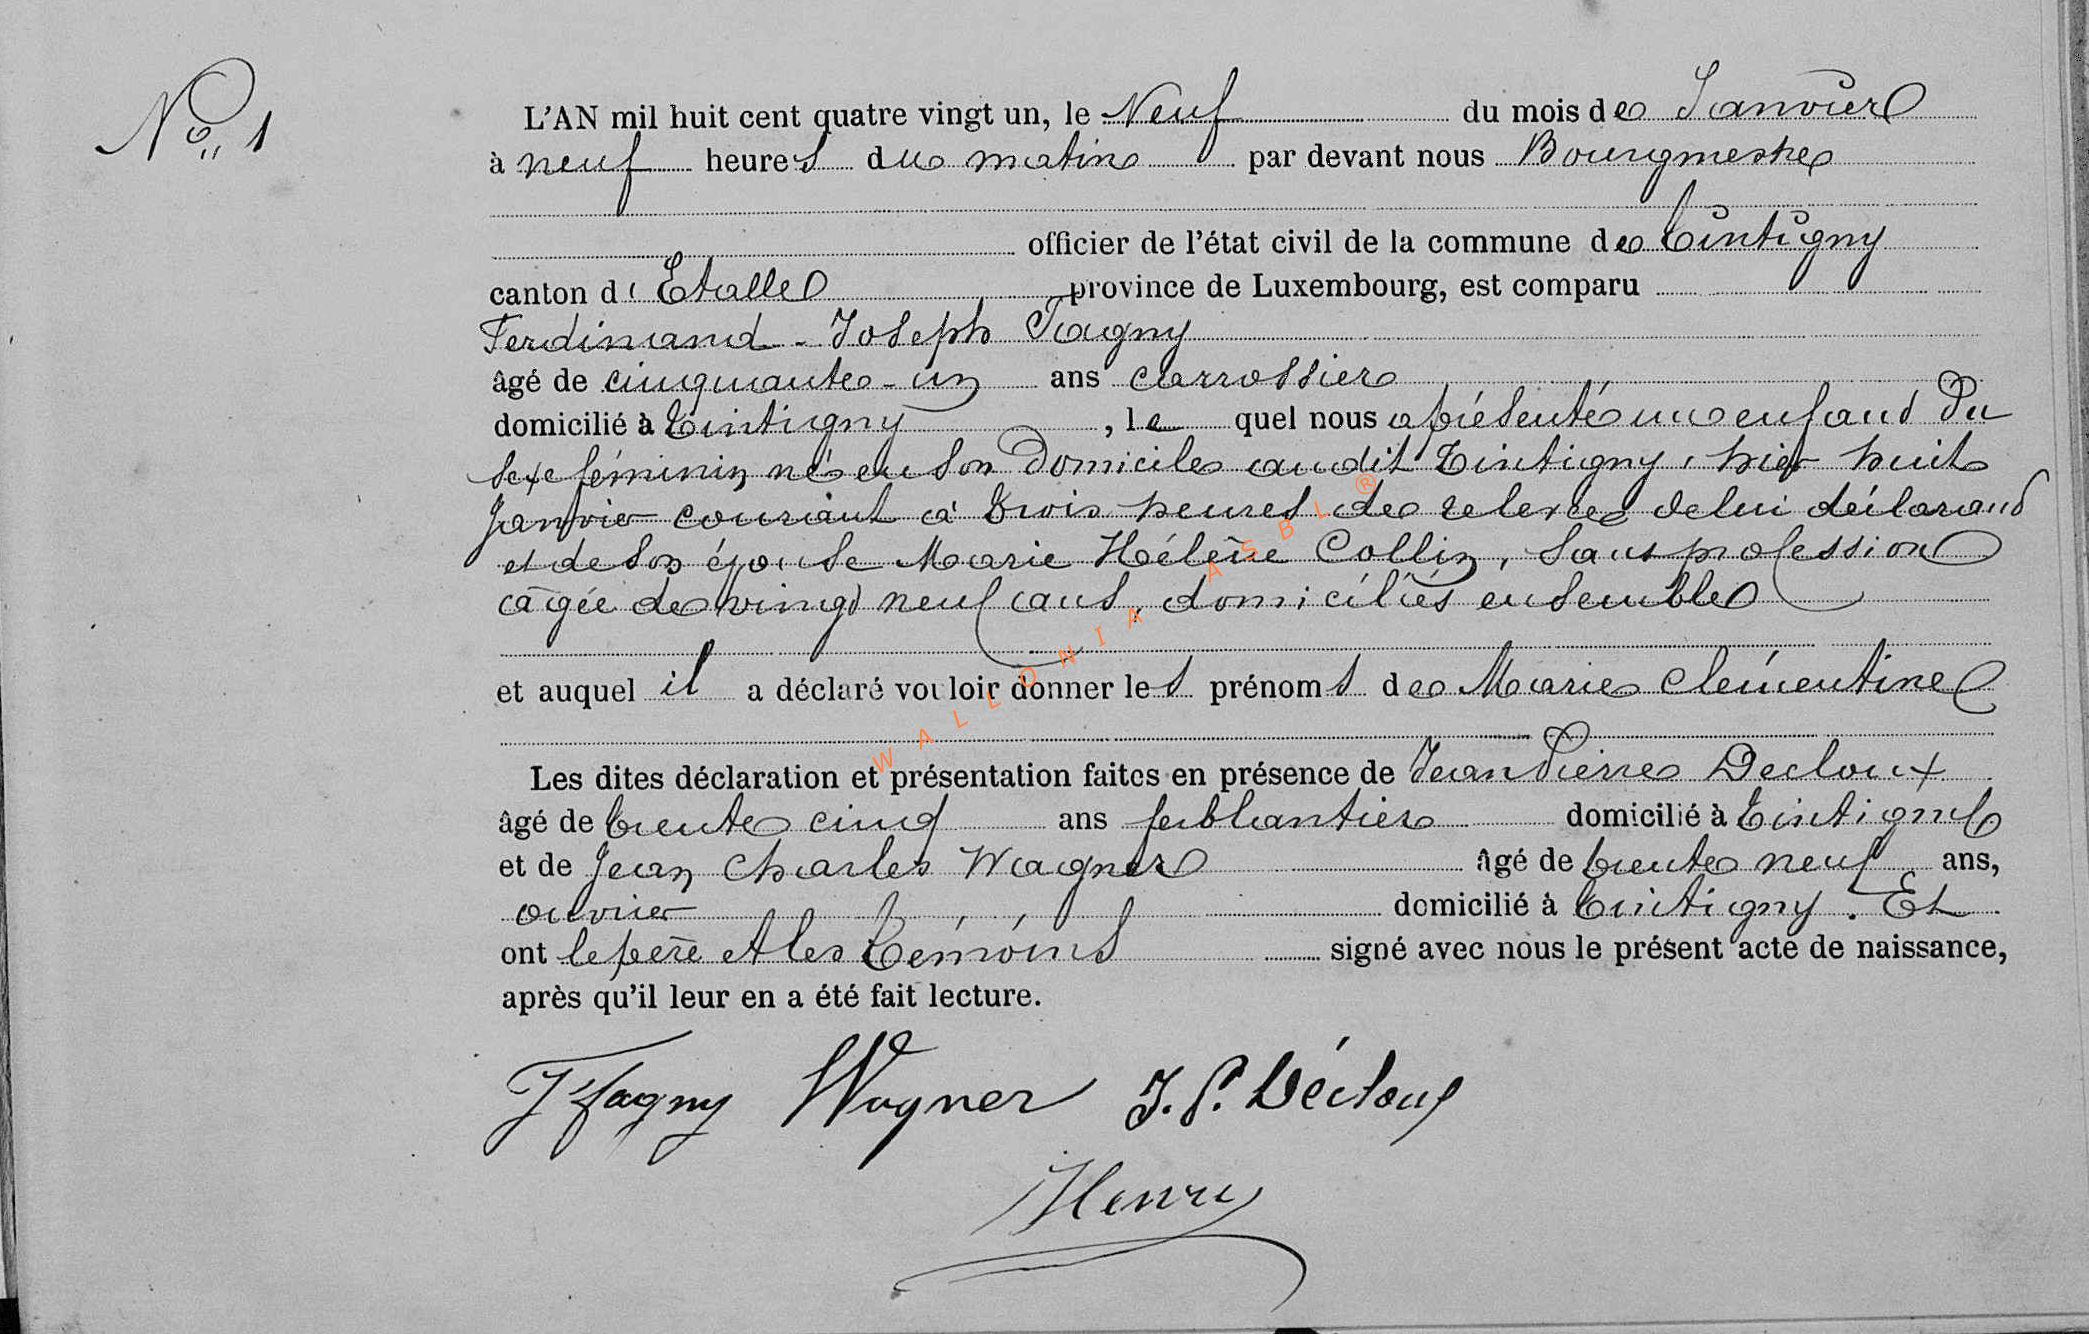 N° 1
L'AN mil huit cent quatre vingt un, le Neuf du mois de Janvier
à neuf heures du matin par devant nous Bourgmestre
officier de l'état civil de la commune de Tintigny
canton d' Etalle province de Luxembourg, est comparu
Ferdinand - Joseph Fagny
âgé de cinquante - un ans carrossier
domicilié à Tintigny, le quel nous a présenté un enfant du
sexe féminin né en son domicile audit Tintigny, hier huit
Janvier courant à trois heures de relevée de lui déclarant
et de son épouse Marie Hélène Collin, sans profession
âgée de vingt neuf ans, domiciliés ensemble
et auquel il a déclaré vouloir donner les prénoms de Marie Clémentine
Les dites déclaration et présentation faites en présence de Jean Pierre Decloux
âgé de trente cinq ans ferblantier domicilié à Tintigny
et de Jean Charles Wagner âgé de trente neuf ans,
ouvrier domicilié à Tintigny. Et
ont le père et les témoins signé avec nous le présent acte de naissance,
après qu'il leur en a été fait lecture.
Fagny Wagner J. P. Décloux
Henry
WALLONIA ASBL ®